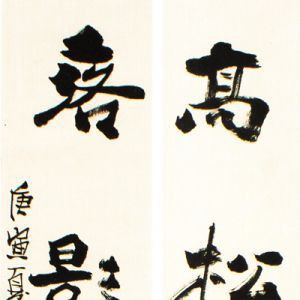 高松
落影
庚寅夏